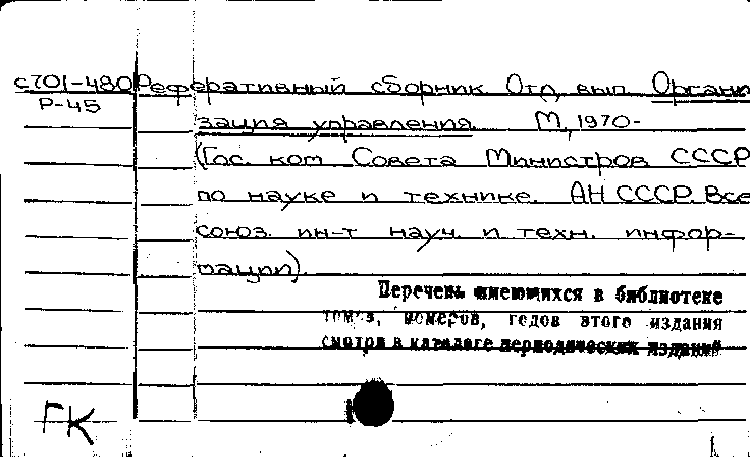 с701-480 Реферативный сборник Отд. вып. Органи
Р-45
зация управления. М., 1970-
(Гос. ком. Совета Министров СССР
по науке и технике. АН СССР. Все
союз. ин-т науч. и техн. инфор-
мации).
Перечень имеющихся в библиотеке
томов, номеров, годов этого издания
смотри в каталоге периодических изданий
ГК